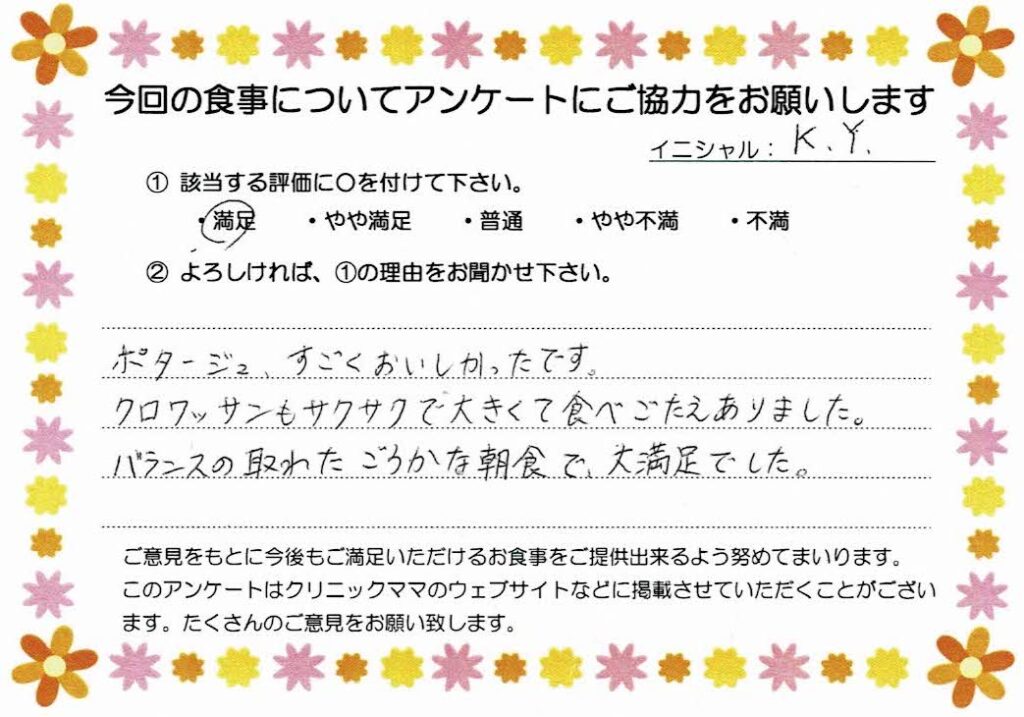 今回の食事についてアンケートにご協力をお願いします
イニシャル：K.Y.
① 該当する評価に〇を付けて下さい。
・満足 ・やや満足 ・普通 ・やや不満 ・不満
② よろしければ、①の理由をお聞かせ下さい。
ポタージュ、すごくおいしかったです。
クロワッサンもサクサクで大きくて食べごたえありました。
バランスの取れたごうかな朝食で、大満足でした。
ご意見をもとに今後もご満足いただけるお食事をご提供出来るよう努めてまいります。
このアンケートはクリニックママのウェブサイトなどに掲載させていただくことがござい
ます。たくさんのご意見をお願い致します。